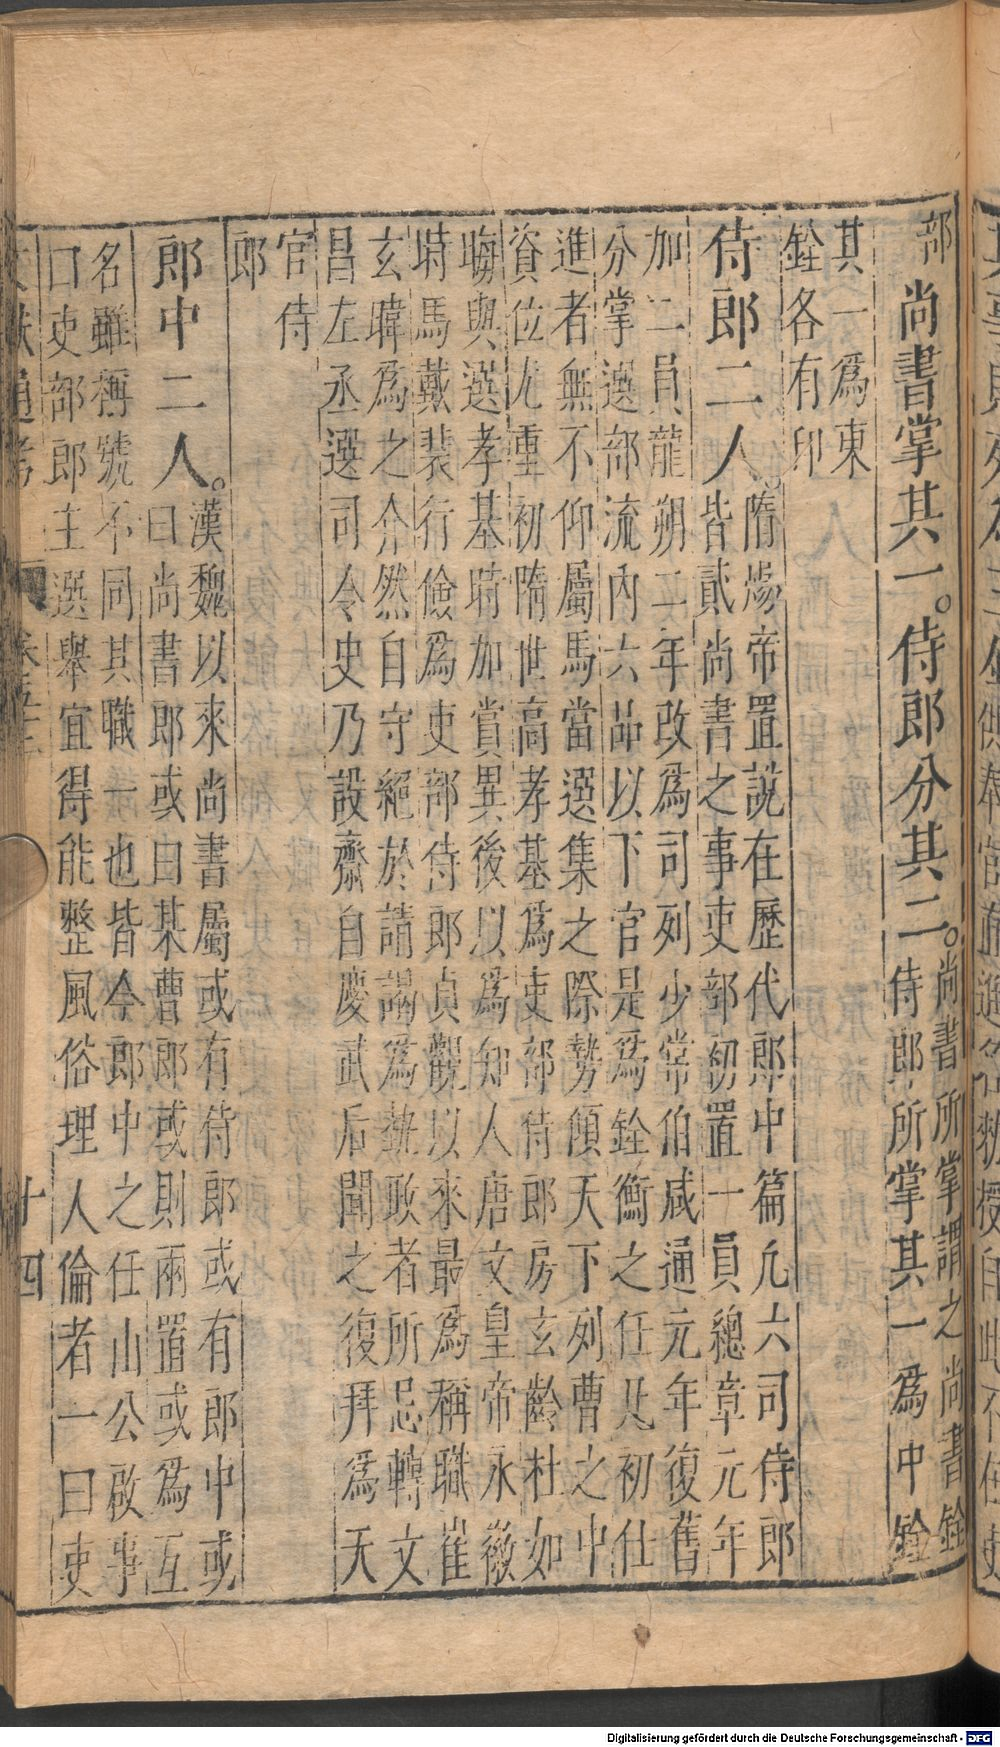 部
尚書掌其一。侍郎分其二。尚書所掌謂之尚書銓
侍郎所掌其一爲中銓
其一爲東
銓各有印
侍郎二人。隋煬帝置說在歷代郎中篇凡六司侍郎
皆貳尚書之事吏部初置一員總章元年
加二員龍朔二年改爲司列少常伯咸通元年復舊
分掌選部流內六品以下官是爲銓衡之任凡初仕
進者無不仰屬馬當選集之際勢傾天下列曹之中
資位尤重初隋世高孝基爲吏部侍郎房玄齡杜如
晦與選孝基時加賞異後以爲知人唐文皇帝永徽
時馬戴裴行儉爲吏部侍郎貞觀以來最爲稱職崔
玄暐爲之介然自守絕於請謁爲執政者所忌轉文
昌左丞選司令史乃設齋自慶武后聞之復拜爲天
官侍
郎
郎中二人。漢魏以來尚書屬或有侍郎或有郎中或
曰尚書郎或曰某曹郎或則兩置或爲互
名雖稱號不同其職一也皆今郎中之任山公啟事
曰吏部郎主選舉宜得能整風俗理人倫者一曰吏
文獻通考 卷五十二 十四
Digitalisierung gefördert durch die Deutsche Forschungsgemeinschaft - DFG